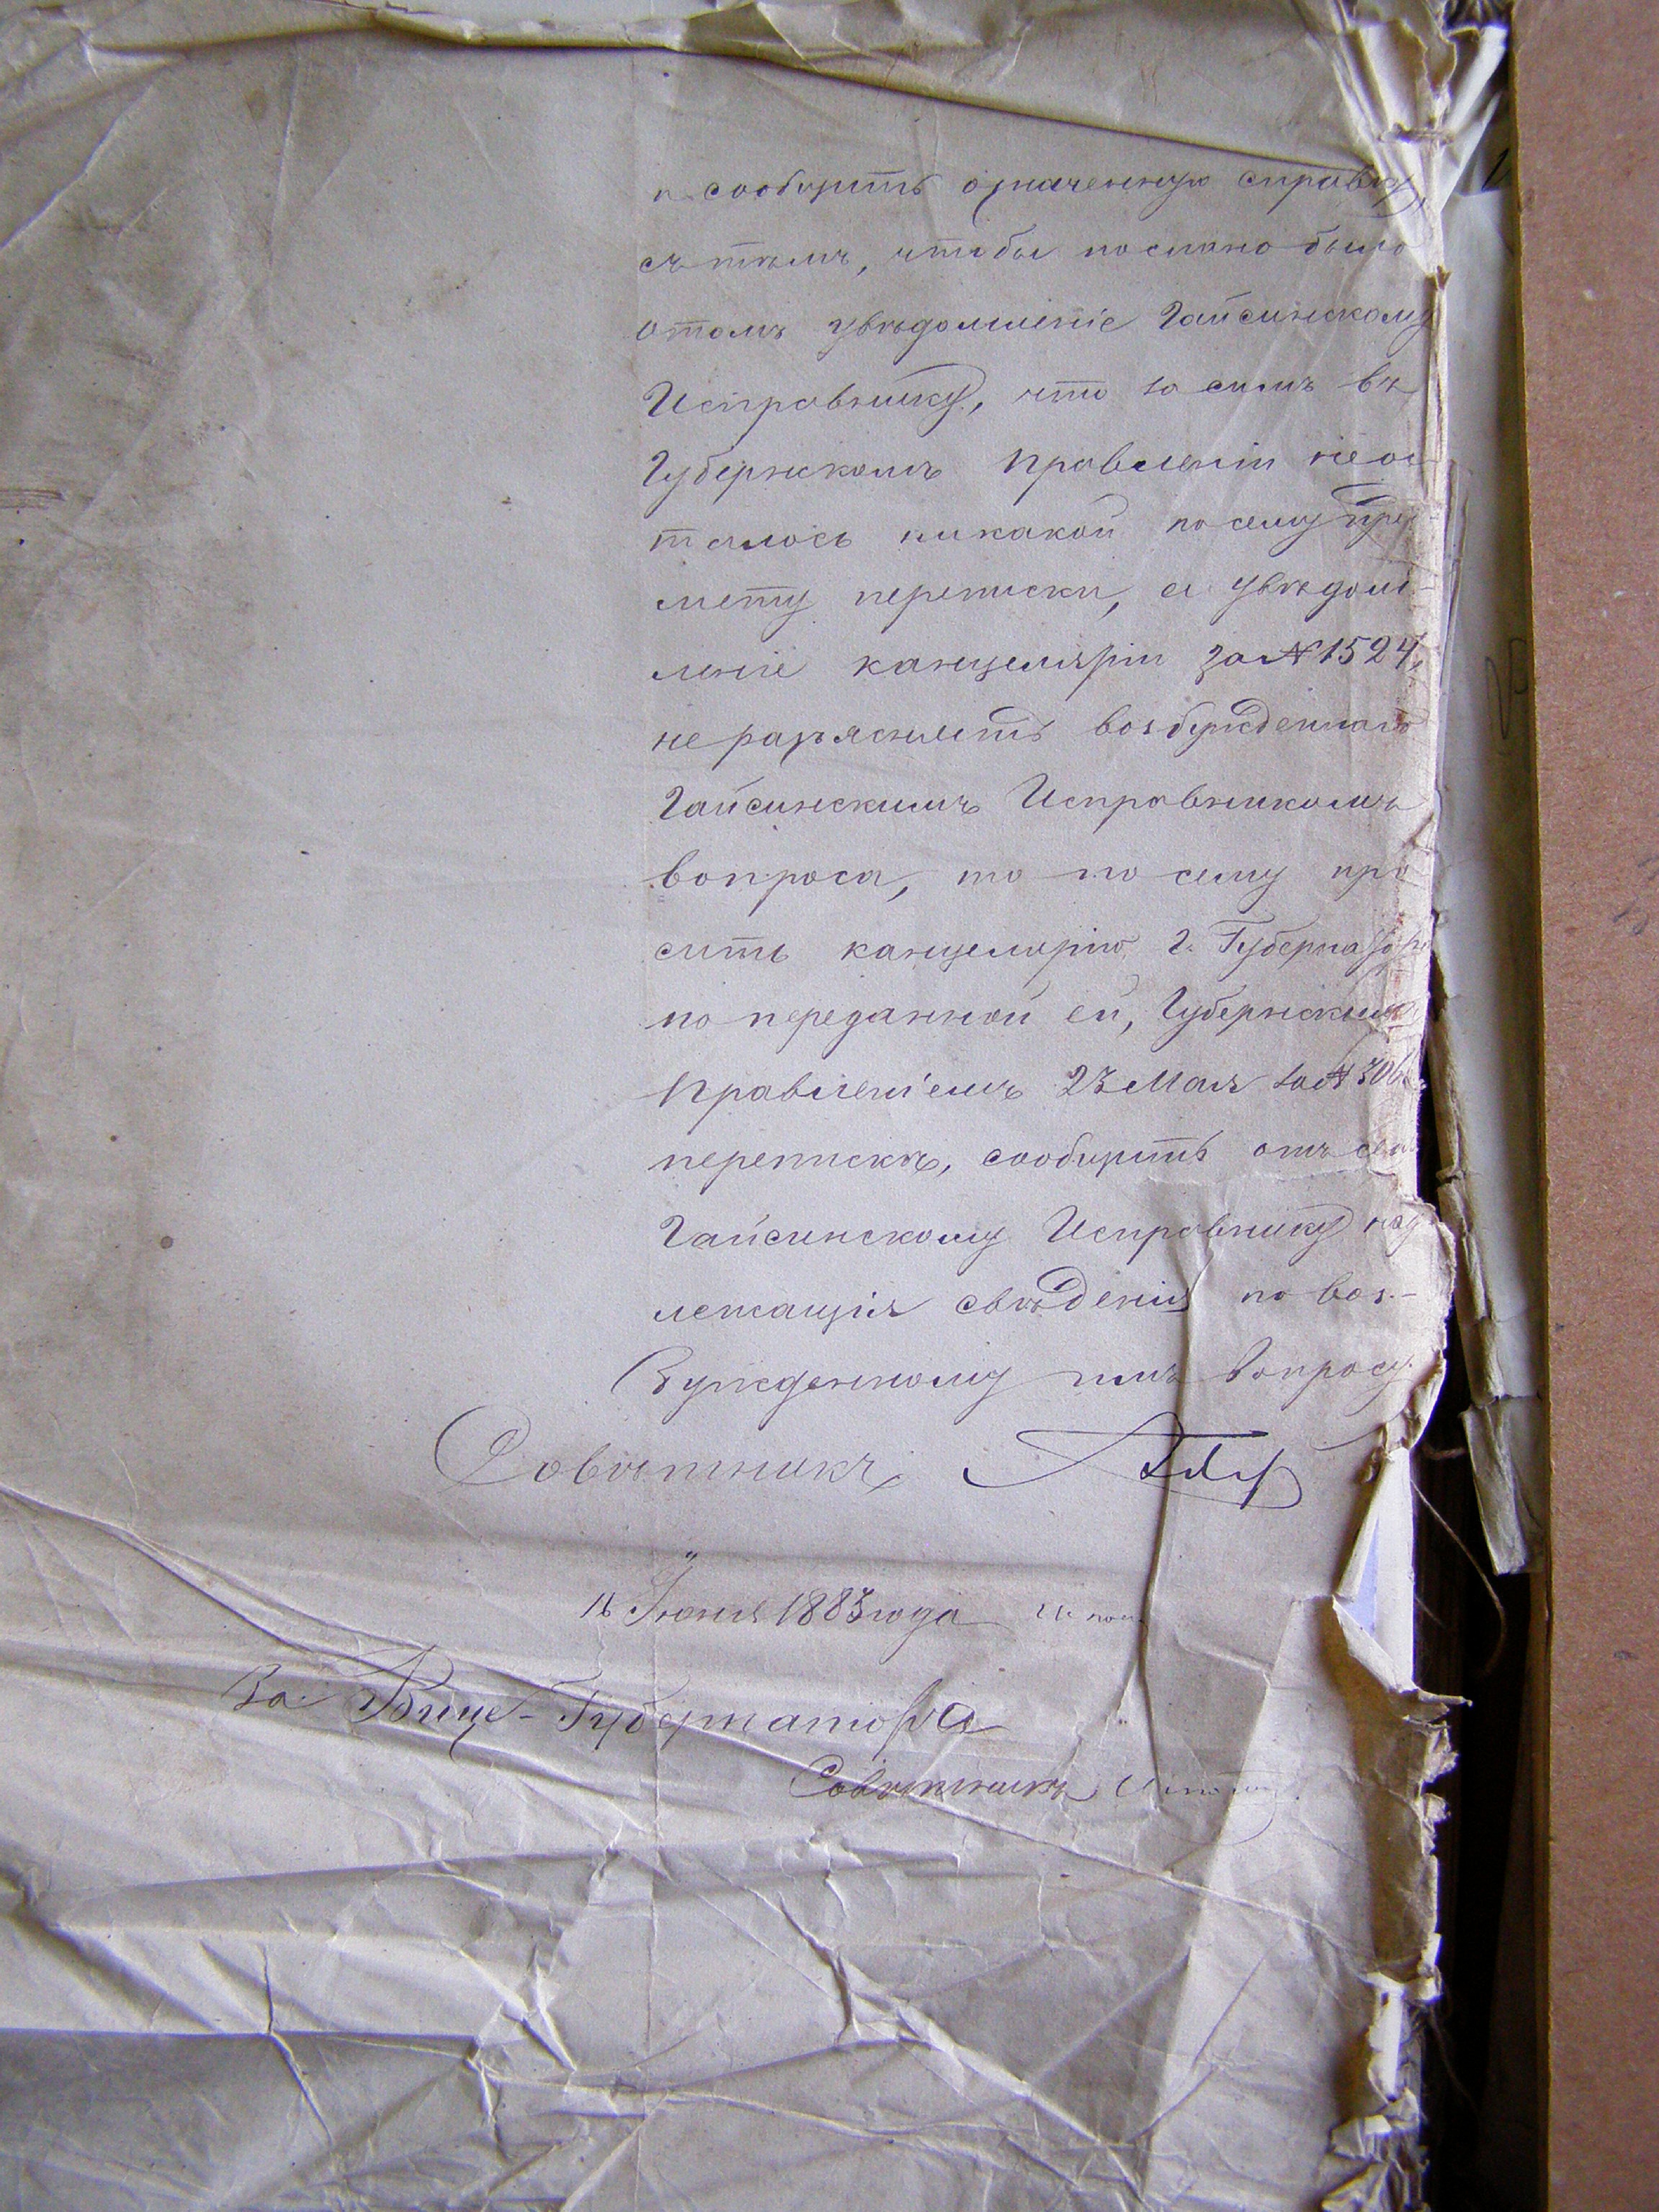 и сообщить означенную справку,
съ тѣмъ, чтобы послано было
о томъ увѣдомленіе Гайсинскому
Исправнику, что за симъ въ
Губернскомъ Правленіи неос
талось никакой по сему пред-
мету переписки, а увѣдом-
леніе канцеляріи за № 1524,
не разъясняетъ возбужденнаго
Гайсинскимъ Исправникомъ
вопроса, то по сему про
сить канцелярію Г. Губернатора
по переданной ей, Губернскимъ
Правленіемъ 23 Мая за №
перепискѣ, сообщить отъ себя
Гайсинскому Исправнику над
лежащія свѣденія по воз-
бужденному имъ вопросу.
Совѣтникъ
16 Іюня 1883 года
За Вице-Губернатора
Совѣтникъ